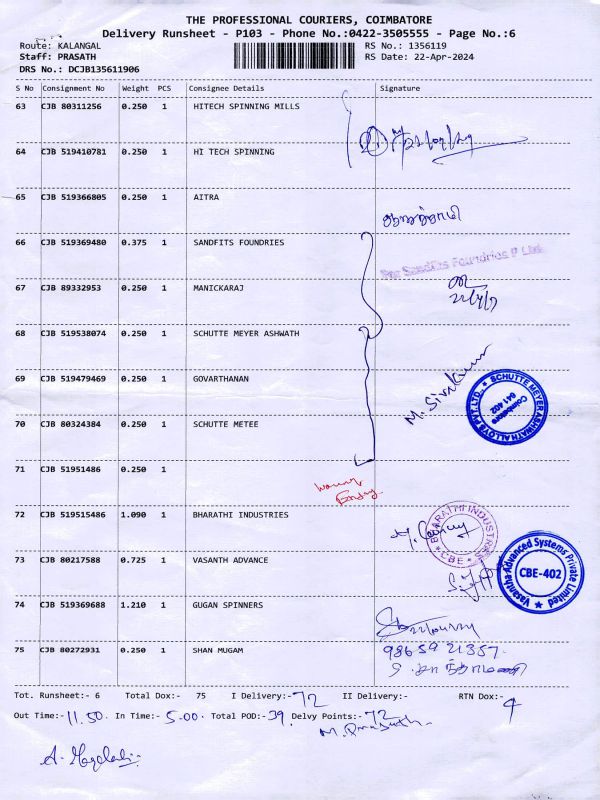 THE PROFESSIONAL COURIERS, COIMBATORE
Delivery Runsheet - P103 - Phone No.:0422-3505555 - Page No.:6
Route: KALANGAL RS No.: 1356119
Staff: PRASATH RS Date: 22-Apr-2024
DRS No.: DCJB135611906
S No Consignment No Weight PCS Consignee Details Signature
63 CJB 80311256 0.250 1 HITECH SPINNING MILLS
64 CJB 519410781 0.250 1 HI TECH SPINNING
65 CJB 519366805 0.250 1 AITRA
66 CJB 519369480 0.375 1 SANDFITS FOUNDRIES
For Sandfits Foundries P Ltd.
67 CJB 89332953 1 MANICKARAJ 0.250
68 CJB 519538074 0.250 1 SCHUTTE MEYER ASHWATH
69 CJB 519479469 0.250 1 GOVARTHANAN
M. Sivakumar
SCHUTTE MEYER ASHWATH ALLOYS PVT. LTD. Coimbatore 641 402
70 CJB 80324384 0.250 1 SCHUTTE METEE
71 CJB 51951486 0.250 1
Wrong
Entry
72 CJB 519515486 1.090 1 BHARATHI INDUSTRIES
BHARATHI INDUSTRIES CBE
73 CJB 80217588 0.725 1 VASANTH ADVANCE
Vasantha Advanced Systems Private Limited CBE-402
74 CJB 519369688 1.210 1 GUGAN SPINNERS
75 CJB 80272931 0.250 1 SHAN MUGAM
98659 21357
Tot. Runsheet:- 6 Total Dox:- 75 I Delivery:- 72 II Delivery:- RTN Dox:- 4
Out Time:- 11.50. In Time:- 5.00. Total POD:- 39. Delvy Points:- 72
M. Prasath